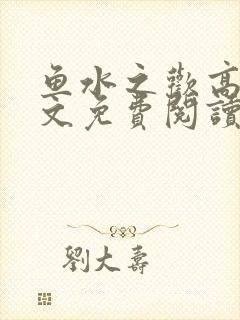 鱼水之歡高
文免費閱讀
劉大壽